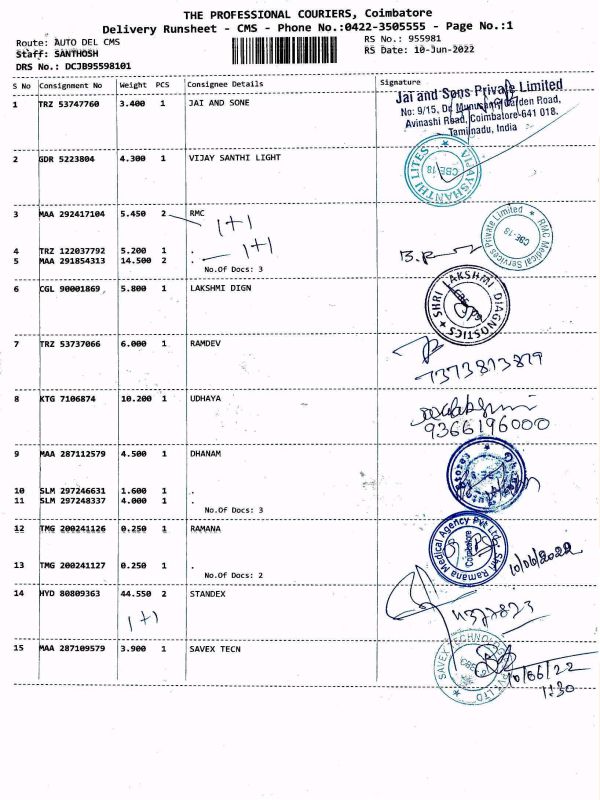 THE PROFESSIONAL COURIERS, Coimbatore
Delivery Runsheet - CMS - Phone No.:0422-3505555 - Page No.:1
Route: AUTO DEL CMS
RS No.: 955981
Staff: SANTHOSH
RS Date: 10-Jun-2022
DRS No.: DCJB95598101
S No Consignment No Weight PCS Consignee Details Signature
1 TRZ 53747760 3.400 1 JAI AND SONE
Jai and Sons Private Limited
No: 9/15, Dr. Munusamy Garden Road,
Avinashi Road, Coimbatore-641 018.
Tamilnadu, India
2 GDR 5223804 4.300 1 VIJAY SANTHI LIGHT
VIJAYSHANTHI LITES
CBE-18
3 MAA 292417104 5.450 2 RMC
1+1
RMC Medical Services Private Limited
CBE-18
4 TRZ 122037792 5.200 1 .
1+1
5 MAA 291854313 14.500 2 .
No.Of Docs: 3
6 CGL 90001869 5.800 1 LAKSHMI DIGN
SHRI LAKSHMI DIAGNOSTICS
7 TRZ 53737066 6.000 1 RAMDEV
7373813879
8 KTG 7106874 10.200 1 UDHAYA
9366196000
9 MAA 287112579 4.500 1 DHANAM
10 SLM 297246631 1.600 1 .
11 SLM 297248337 4.000 1 .
No.Of Docs: 3
12 TMG 200241126 0.250 1 RAMANA
Shri Ramana Medical Agency Pvt Ltd.
Coimbatore
10/06/2022
13 TMG 200241127 0.250 1 .
No.Of Docs: 2
14 HYD 80809363 44.550 2 STANDEX
1+1
15 MAA 287109579 3.900 1 SAVEX TECN
SAVEX TECHNOLOGIES PVT LTD
10/06/22
1:30